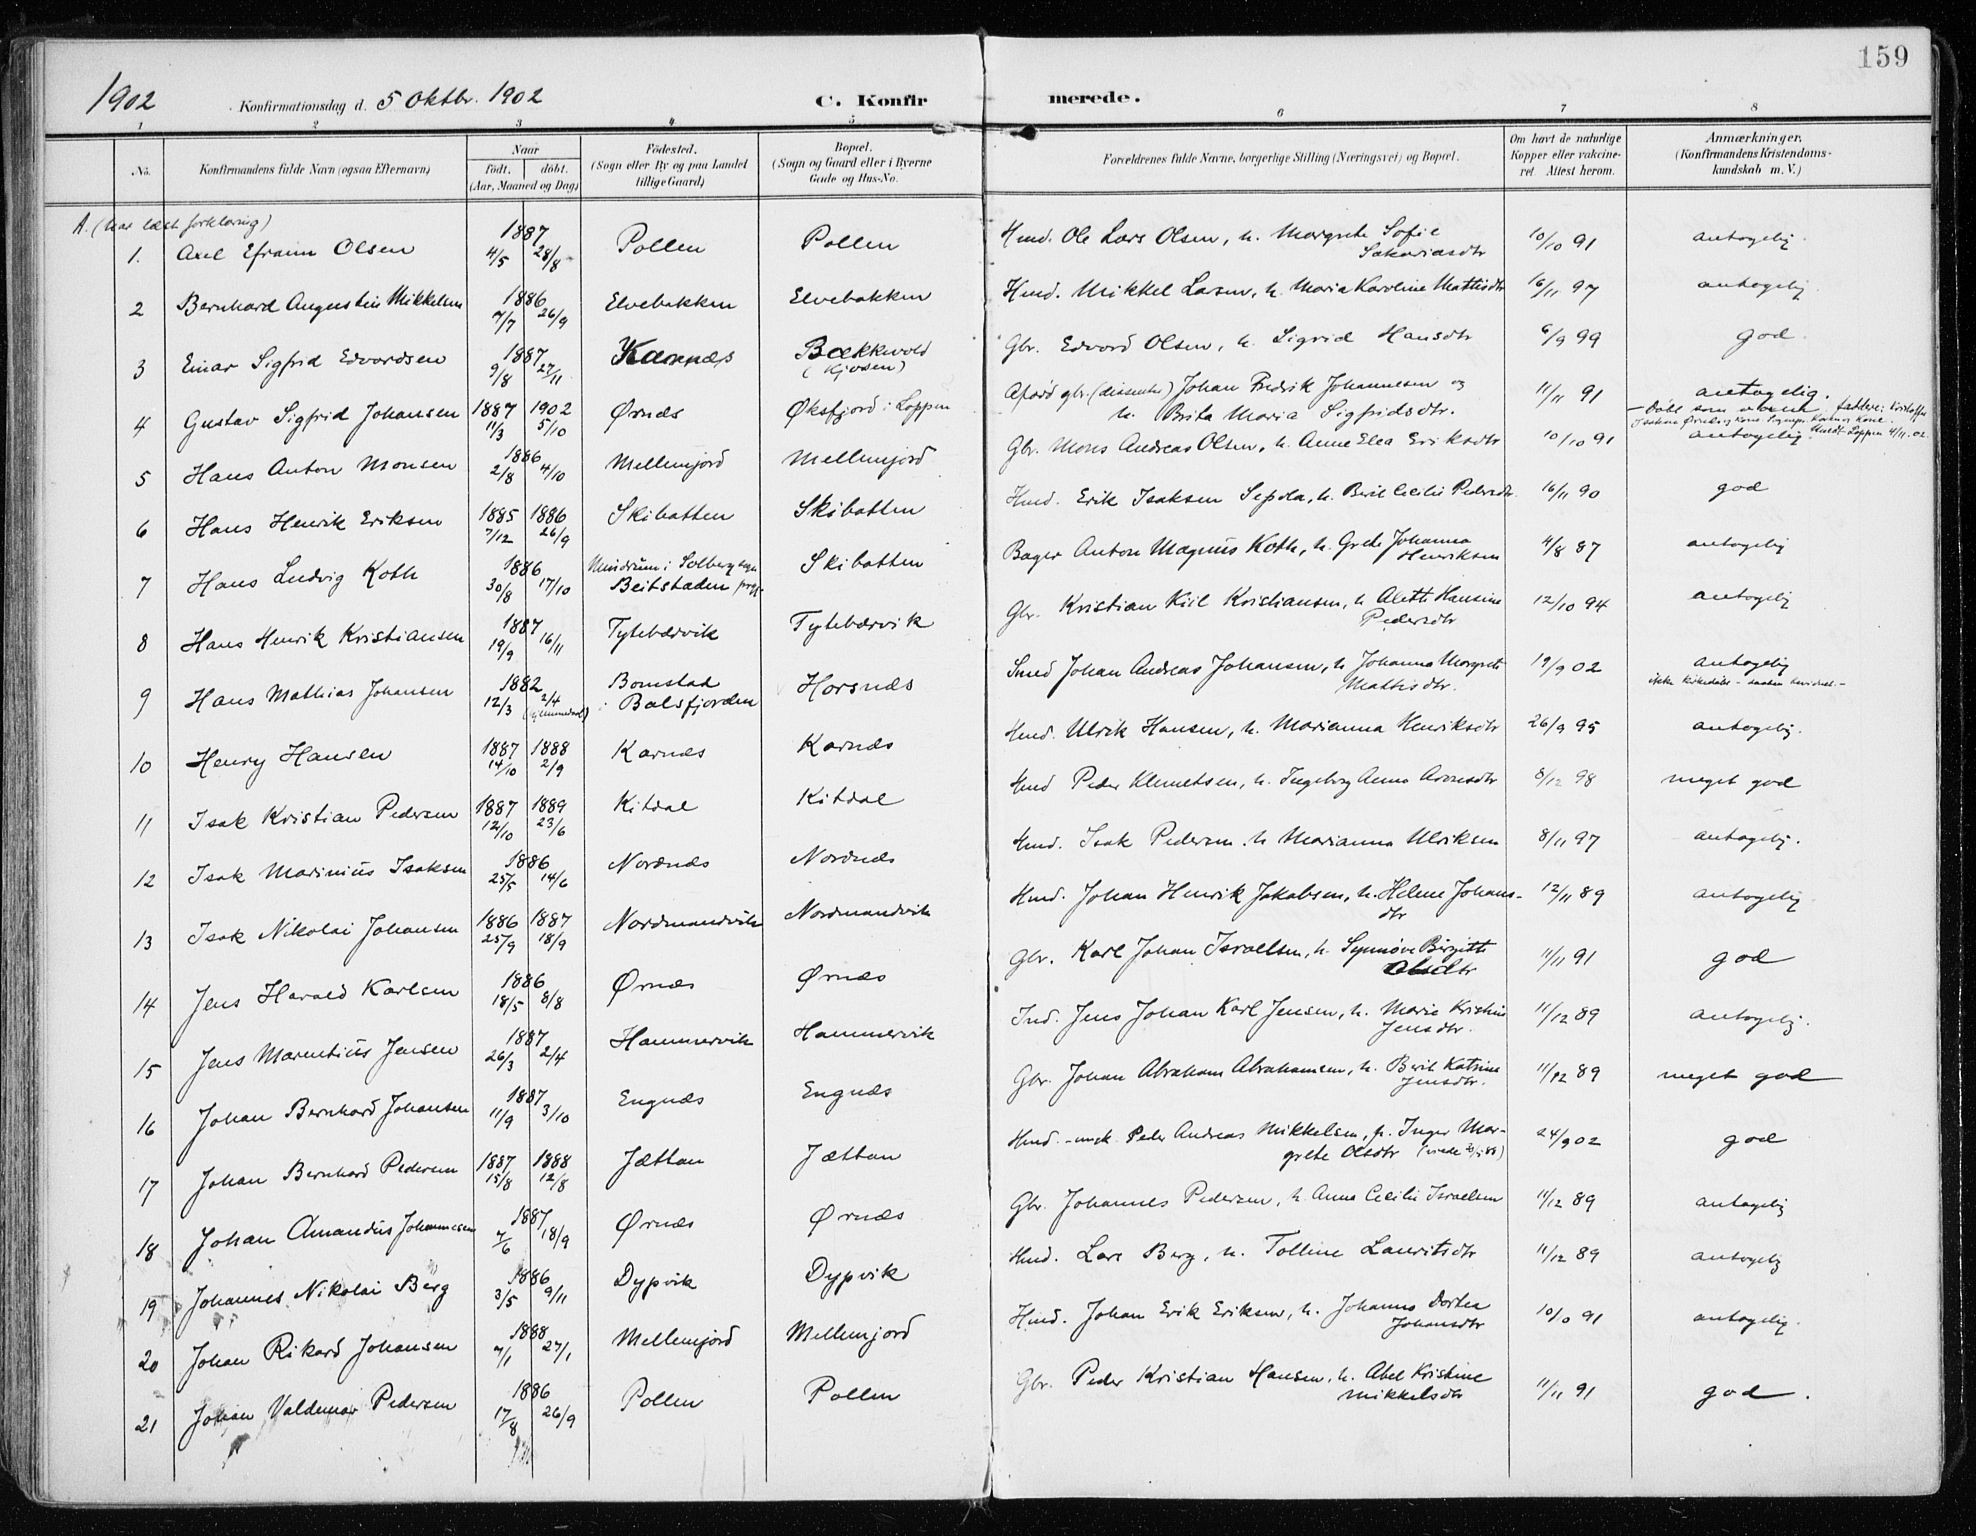 159
1902 Konfirmationsdag d. 5 Oktbr. 1902 C. Konfirmerede.
1 2 3 4 5 6 7 8
No. Konfirmandens fulde Navn (ogsaa Efternavn) Naar født. døbt. (Aar, Maaned og Dag) Fødested. (Sogn eller By og paa Landet tillige Gaard) Bopæl. (Sogn og Gaard eller i Byerne Gade og Hus-No. Forældrenes fulde Navne, borgerlige Stilling (Næringsvei) og Bopæl. Om havt de naturlige Kopper eller vakcineret. Attest herom. Anmærkninger. (Konfirmandens Kristendomskundskab m. V.)
A. (har læst forklaring)
1. Axel Efraim Olsen 1887 4/5 28/8 Pollen Pollen Hmd. Ole Lars Olsen, h. Margrete Sofie Sakariasdtr 10/10 91 antagelig.
2 Bernhard Augustin Mikkelsen 1886 7/7 26/9 Elvebakken Elvebakken Hmd. Mikkel Larsen, h. Maria Karoline Mattisdtr 16/11 97 antagelig.
3 Einar Sigfrid Edvardsen 1887 9/8 27/11 Karnæs Bækkevold (Kjosen) Gbr. Edvard Olsen, h. Sigrid Hansdtr 6/9 99 god.
4 Gustav Sigfrid Johansen 1887 11/3 1902 5/10 Ørnæs Øksfjord i Loppen Aførd gbr. (dissenter) Johan Fredrik Johannesen og h. Brita Maria Sigfridsdtr. 11/11 91 antagelig.
- Døbt som voksen faddere:
5 Hans Anton Monsen 1886 2/8 4/10 Mellemjord Mellemjord Gbr. Mons Andreas Olsen, h. Anne Elea Eriksdtr 10/10 91 antagelig
6 Hans Henrik Eriksen 1885 7/12 1886 26/9 Skibotten Skibotten Hmd. Erik Isaksen Seppla, h. Berit Cecilie Pedersdtr. 16/11 90 god
7 Hans Ludvig Koth 1886 30/8 17/10 i Solberg sogn Beitstaden prgj. Skibotten Bager Anton Magnus Koth, h. Grete Johanna Henriksen 4/8 87 antagelig
8 Hans Henrik Kristiansen 1887 19/9 16/11 Tytebærvik Tytebærvik Gbr. Kristian Kiil Kristiansen, h. Aleth Hansine Pedersdtr 12/10 94 antagelig
9 Hans Mathias Johansen 1882 12/3 2/4 (hjemmedøbt) Bomstad i Balsfjorden Horsnæs Smed Johan Andreas Johansen, h. Johanna Margrete Mattisdtr. 19/9 02 antagelig
ikke
10 Henry Hansen 1887 14/10 1888 2/9 Karnæs Karnæs Hmd. Ulrik Hansen, h. Marianna Henriksdtr 26/9 95 antagelig.
11 Isak Kristian Pedersen 1887 12/10 1889 23/6 Kitdal Kitdal Hmd Peder Klemetsen, h. Ingeborg Anna Aronsdtr 8/12 98 meget god
12 Isak Marinius Isaksen 1886 25/5 14/6 Nordnæs Nordnæs Hmd. Isak Pedersen. h Marianna Ulriksen 8/11 97 antagelig.
13 Isak Nikolai Johansen 1886 25/9 1887 18/9 Nordmandvik Nordmandvik Hmd. Johan Henrik Jakobsen, h. Helene Johansdtr 12/11 89 antagelig
14 Jens Harald Karlsen 1886 18/5 8/8 Ørnæs Ørnæs Gbr. Karl Johan Israelsen, h. Synnøve Birgitte Olsdtr 11/11 91 god
15 Jens Marentius Jensen 1887 26/3 2/4 Hammervik Hammervik Ind. Jens Johan Karl Jensen, h. Marie Kristine Jensdtr. 11/12 89 antagelig.
16 Johan Bernhard Johansen 1887 11/9 3/10 Engnæs Engnæs Gbr. Johan Abraham Abrahamsen, h. Berit Katrine Jensdtr. 11/12 89 meget god
17 Johan Bernhard Pedersen 1887 15/8 1888 12/8 Jættan Jættan Hmd. - Peder Andreas Mikkelsen, p. Inger Margrete Olsdtr 24/9 02 god
18 Johan Amandus Johannesen 1887 7/6 18/9 Ørnæs Ørnæs Gbr. Johannes Pedersen, h. Anna Cecilie Israelsen 11/12 89 antagelig
19 Johannes Nikolai Berg 1886 3/5 9/11 Dypvik Dypvik Hmd. Lars Berg, h. Tolline Lauritsdtr 11/12 89 antagelig
20 Johan Rikard Johansen 1888 7/1 27/1 Mellemjord Mellemjord Hmd. Johan Erik Eriksen, h. Johanna Dortea Johansdtr 10/10 91 antagelig.
21 Johan Valdemar Pedersen 1886 17/8 26/9 Pollen Pollen Gbr. Peder Kristian Hansen, h. Abel Kristine Mikkelsdtr 11/11 91 god.